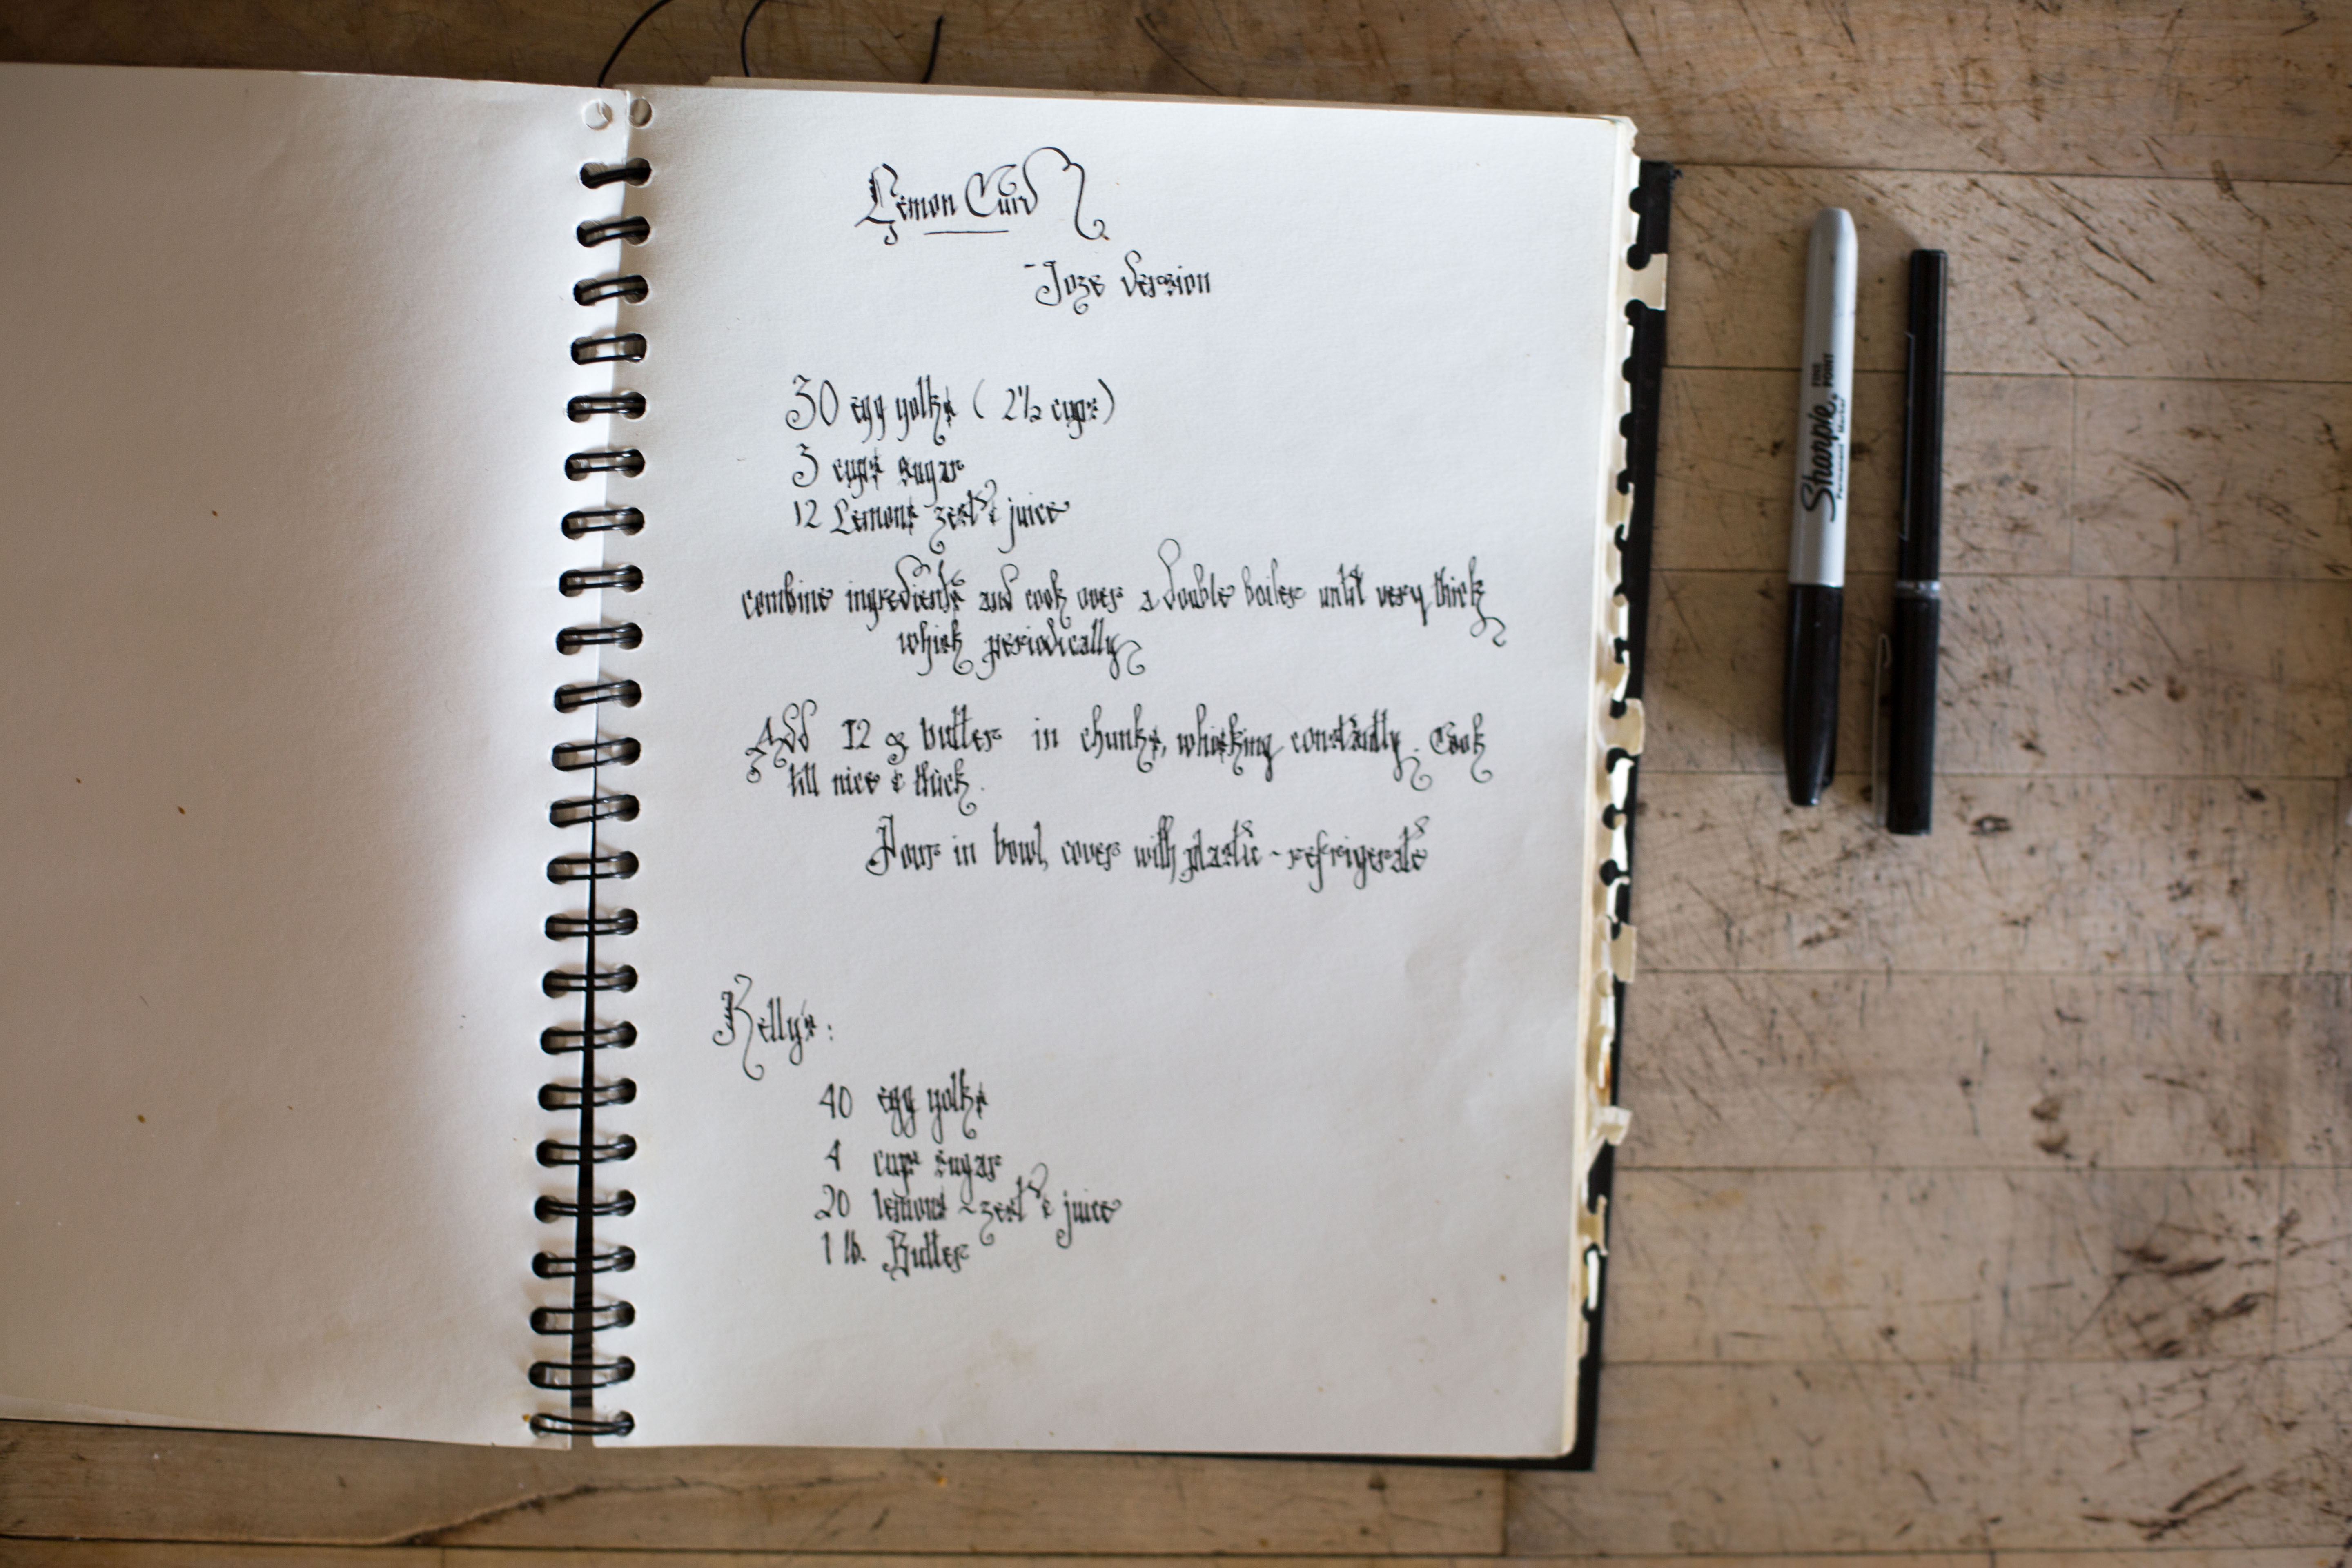 Lemon Curd
- Joze Version
30 egg yolks ( 2 1/2 cups)
3 cups sugar
12 Lemons zest & juice
combine ingredients and cook over a double boiler until very thick
whisk periodically
Add 12 oz butter in chunks, whisking constantly. Cook
till nice & thick.
Pour in bowl, cover with plastic - refrigerate
Kelly's:
40 egg yolks
4 cups sugar
20 lemons - zest & juice
1 lb. Butter
Sharpie
Permanent Marker
FINE POINT